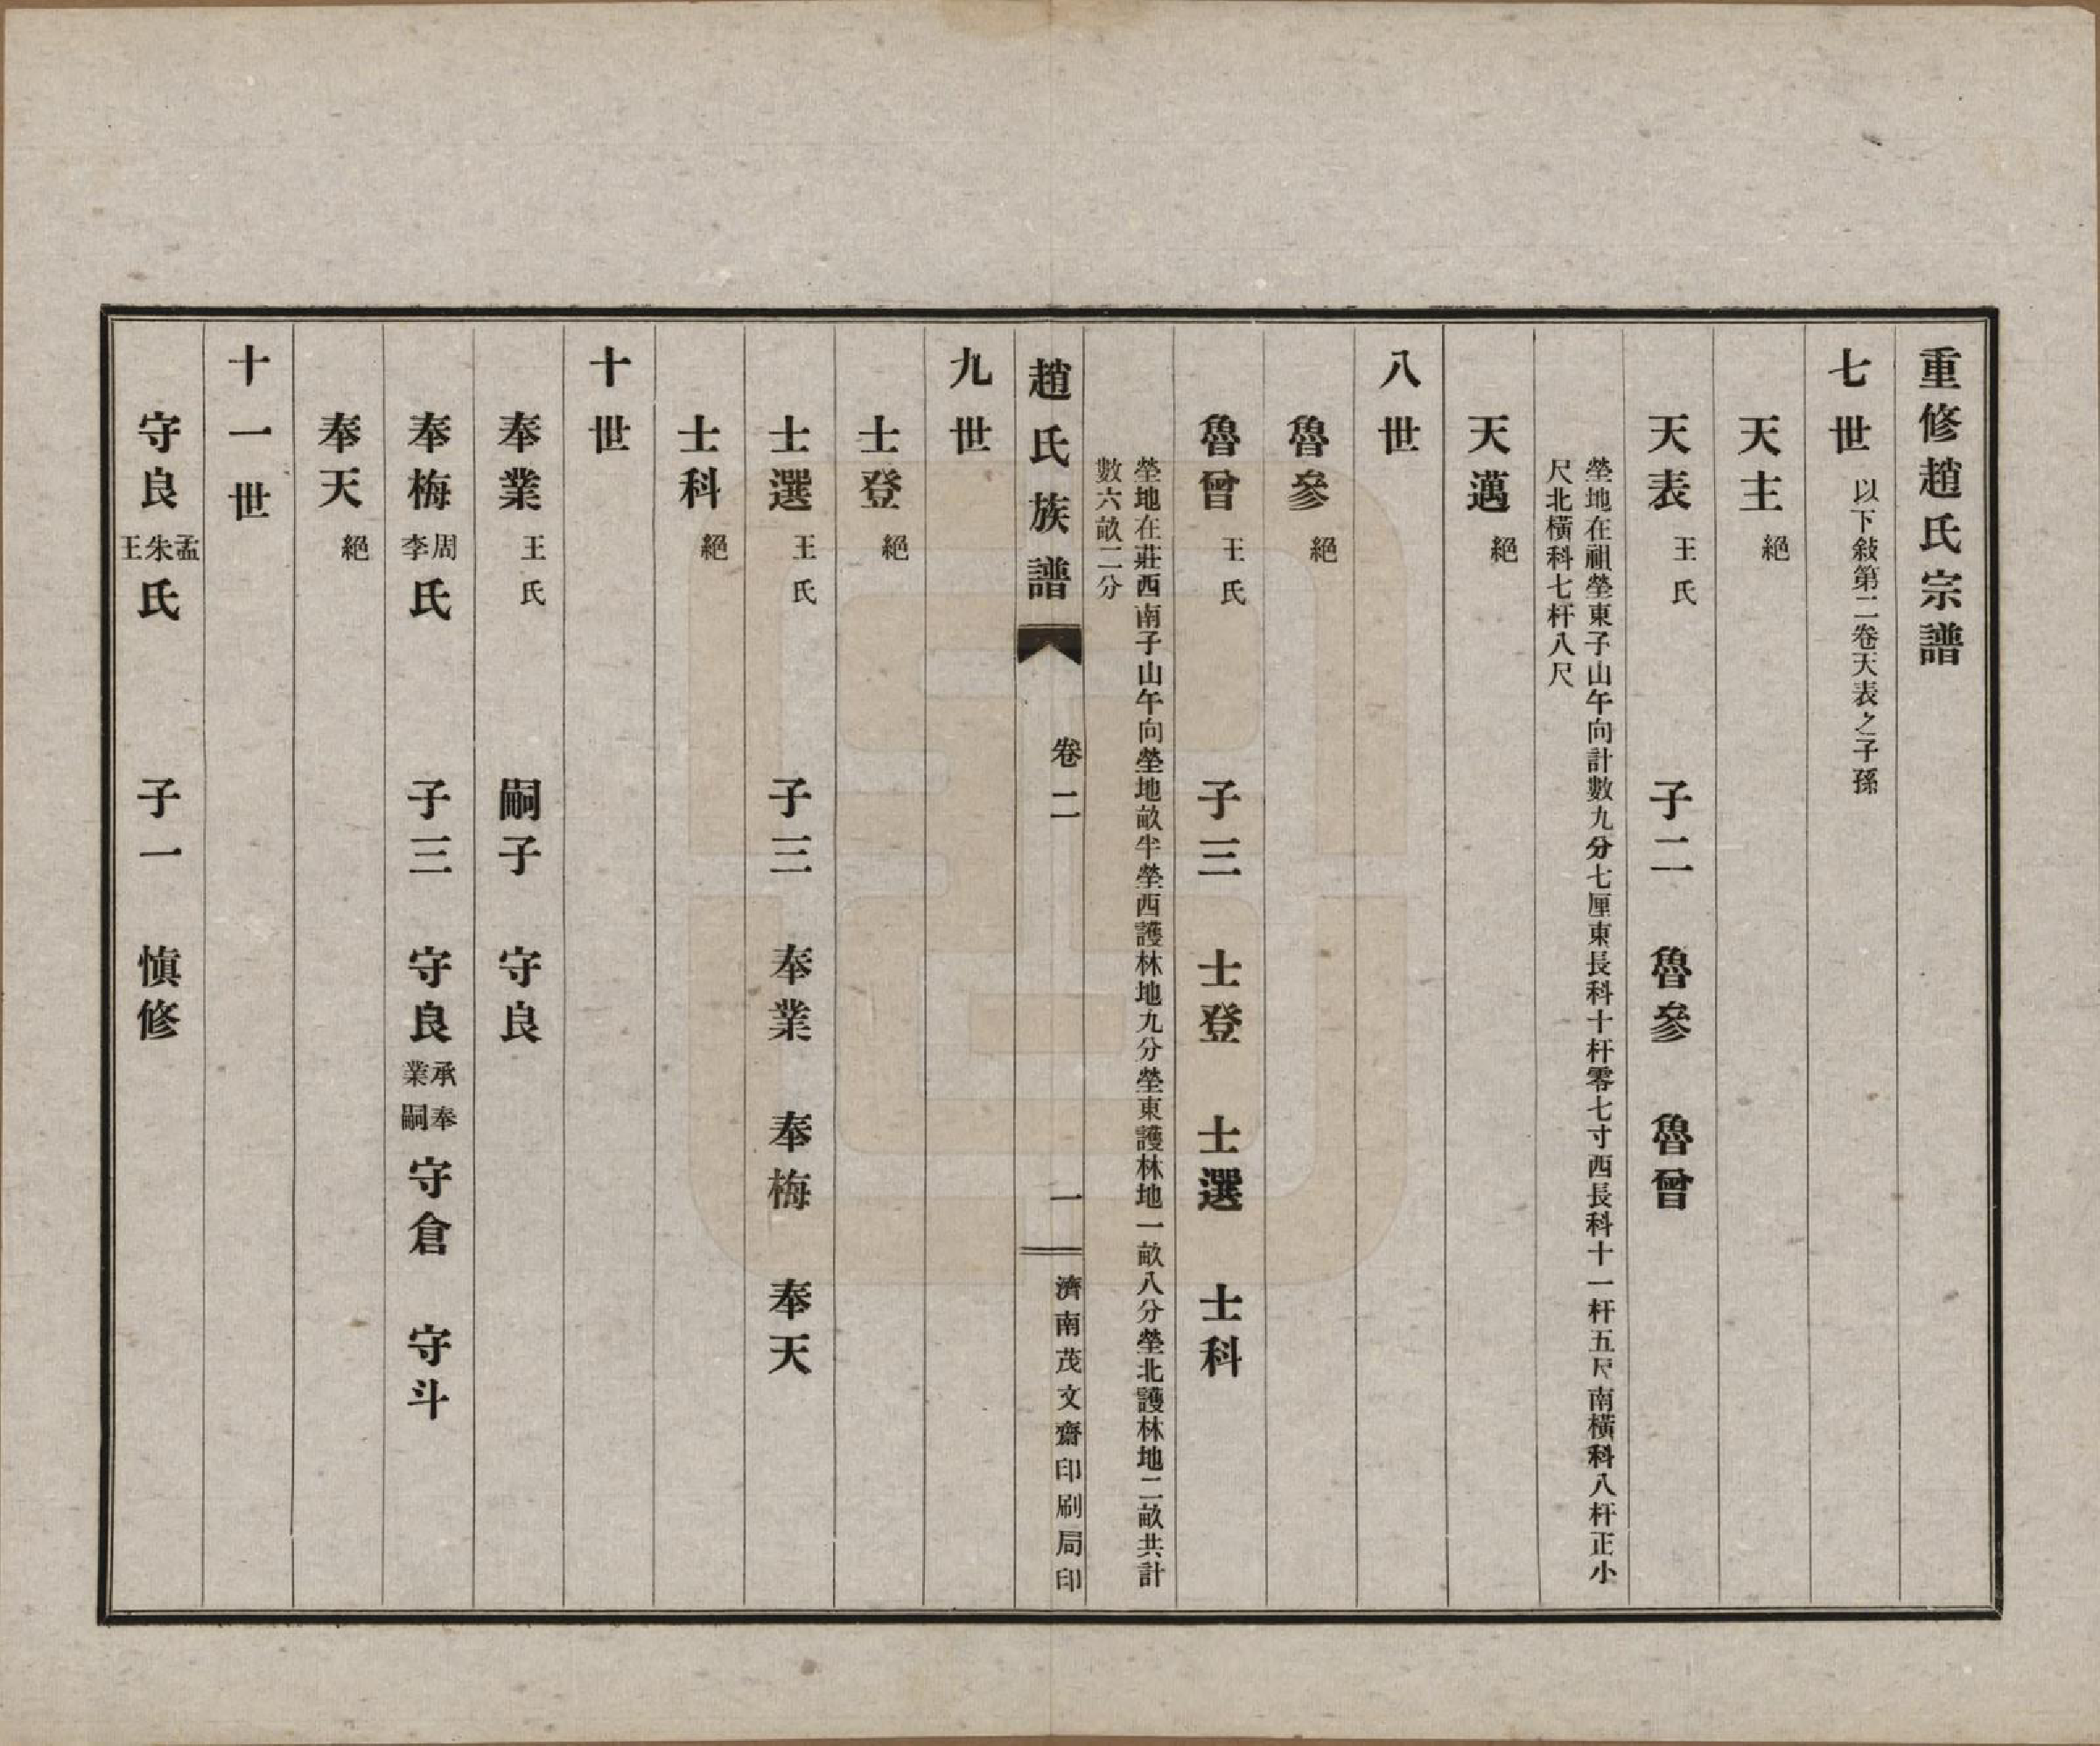 重修趙氏宗譜
七世 以下敍第二卷天表之子孫
天主 絕
天表 王氏 子二 魯參 魯曾
塋地在祖塋東子山午向計數九分七厘東長科十杆零七寸西長科十一杆五尺南橫科八杆正小
尺北橫科七杆八尺
天邁 絕
八世
魯參 絕
魯曾 王氏 子三 士登 士選 士科
塋地在莊西南子山午向塋地畝半塋西護林地九分塋東護林地一畝八分塋北護林地二畝共計
數六畝二分
趙氏族譜 卷二 一 濟南茂文齋印刷局印
九世
士登 絕
士選 王氏 子三 奉業 奉梅 奉天
士科 絕
十世
奉業 王氏 嗣子 守良
奉梅 周李氏 子三 守良 承奉業嗣 守倉 守斗
奉天 絕
十一世
守良 孟朱王氏 子一 慎修